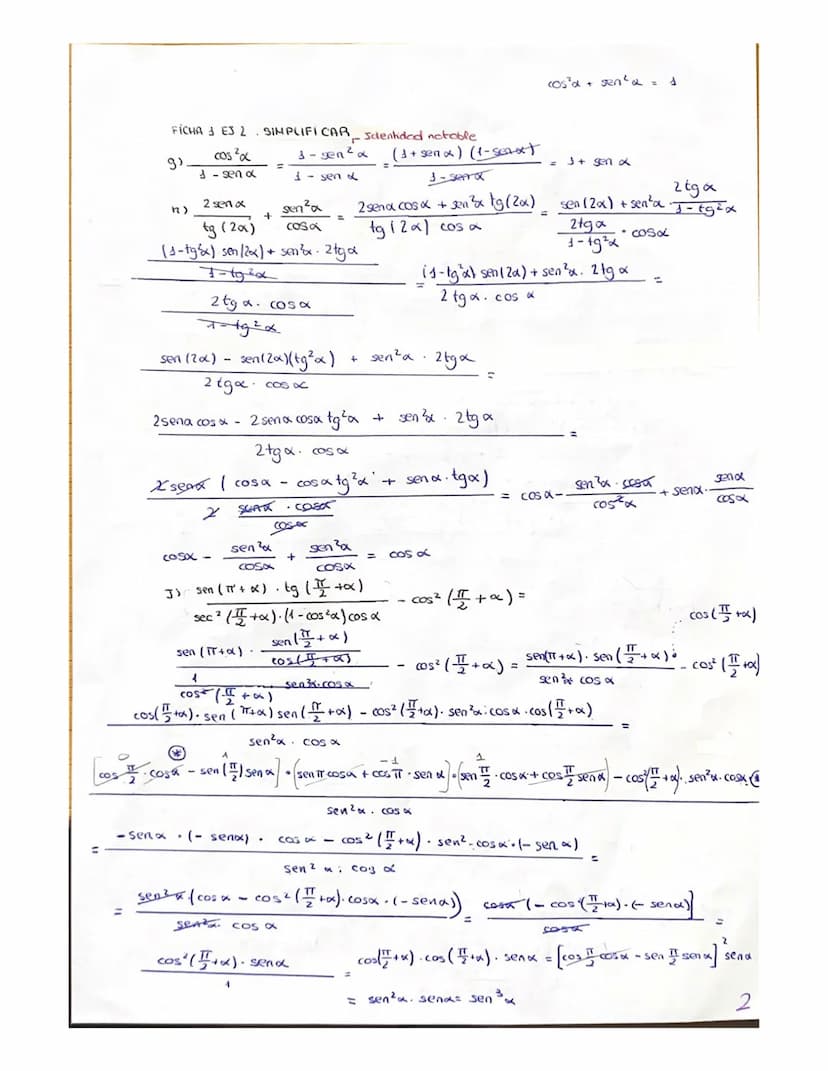 cos²α + sen²α = 1
FICHA 1 EJ 2. SIMPLIFICAR
Identidad notable
g) cos²α / (1 - sen α) = (1 - sen²α) / (1 - sen α) = (1 + sen α)(1 - sen α) / (1 - sen α) = 1 + sen α
n) 2 sen α / tg(2α) + sen²α / cos α = (2 sen α cos α + sen²α tg(2α)) / (tg(2α) cos α) = (sen(2α) + sen²α · 2tgα / (1 - tg²α)) / (2tgα / (1 - tg²α) · cos α)
(((1 - tg²α) sen(2α) + sen²α · 2tgα) / (1 - tg²α)) / ((2tgα · cos α) / (1 - tg²α)) = ((1 - tg²α) sen(2α) + sen²α · 2tgα) / (2tgα · cos α) =
(sen(2α) - sen(2α)(tg²α) + sen²α · 2tgα) / (2tgα · cos α) =
(2 sen α cos α - 2 sen α cos α tg²α + sen²α · 2tgα) / (2tgα · cos α) =
2 sen α (cos α - cos α tg²α + sen α · tgα) / (2 sen α · cos α / cos α) = cos α - sen²α · cos α / cos²α + sen α · sen α / cos α
cos α - sen²α / cos α + sen²α / cos α = cos α
J) sen(π + α) · tg(π/2 + α) / (sec²(π/2 + α) · (1 - cos²α) cos α) - cos²(π/2 + α) =
cos(π/2 + α)
(sen(π + α) · sen(π/2 + α) / cos(π/2 + α)) / (1 / cos²(π/2 + α) · sen²α · cos α) - cos²(π/2 + α) = sen(π + α) · sen(π/2 + α) · / (sen²α cos α) - cos²(π/2 + α)
(cos(π/2 + α) · sen(π + α) sen(π/2 + α) - cos²(π/2 + α) · sen²α · cos α · cos(π/2 + α)) / (sen²α · cos α) =
0 * 1 -1 1
([cos π/2 · cos α - sen(π/2) sen α] · (sen π cos α + cos π · sen α) · (sen π/2 · cos α + cos π/2 sen α) - cos²(π/2 + α) · sen²α · cos α) / (sen²α · cos α)
= (-sen α · (-sen α) · cos α - cos²(π/2 + α) · sen² · cos α · (-sen α)) / (sen²α · cos α) =
= sen²α (cos α - cos²(π/2 + α) · cos α · (-sen α)) / (sen²α · cos α) = cos α (- cos²(π/2 + α) · (-sen α)] / cos α =
cos²(π/2 + α) · sen α / 1 = cos(π/2 + α) · cos(π/2 + α) · sen α = [cos π/2 cos α - sen π/2 sen α]² sen α
= sen²α · sen α = sen³α
2